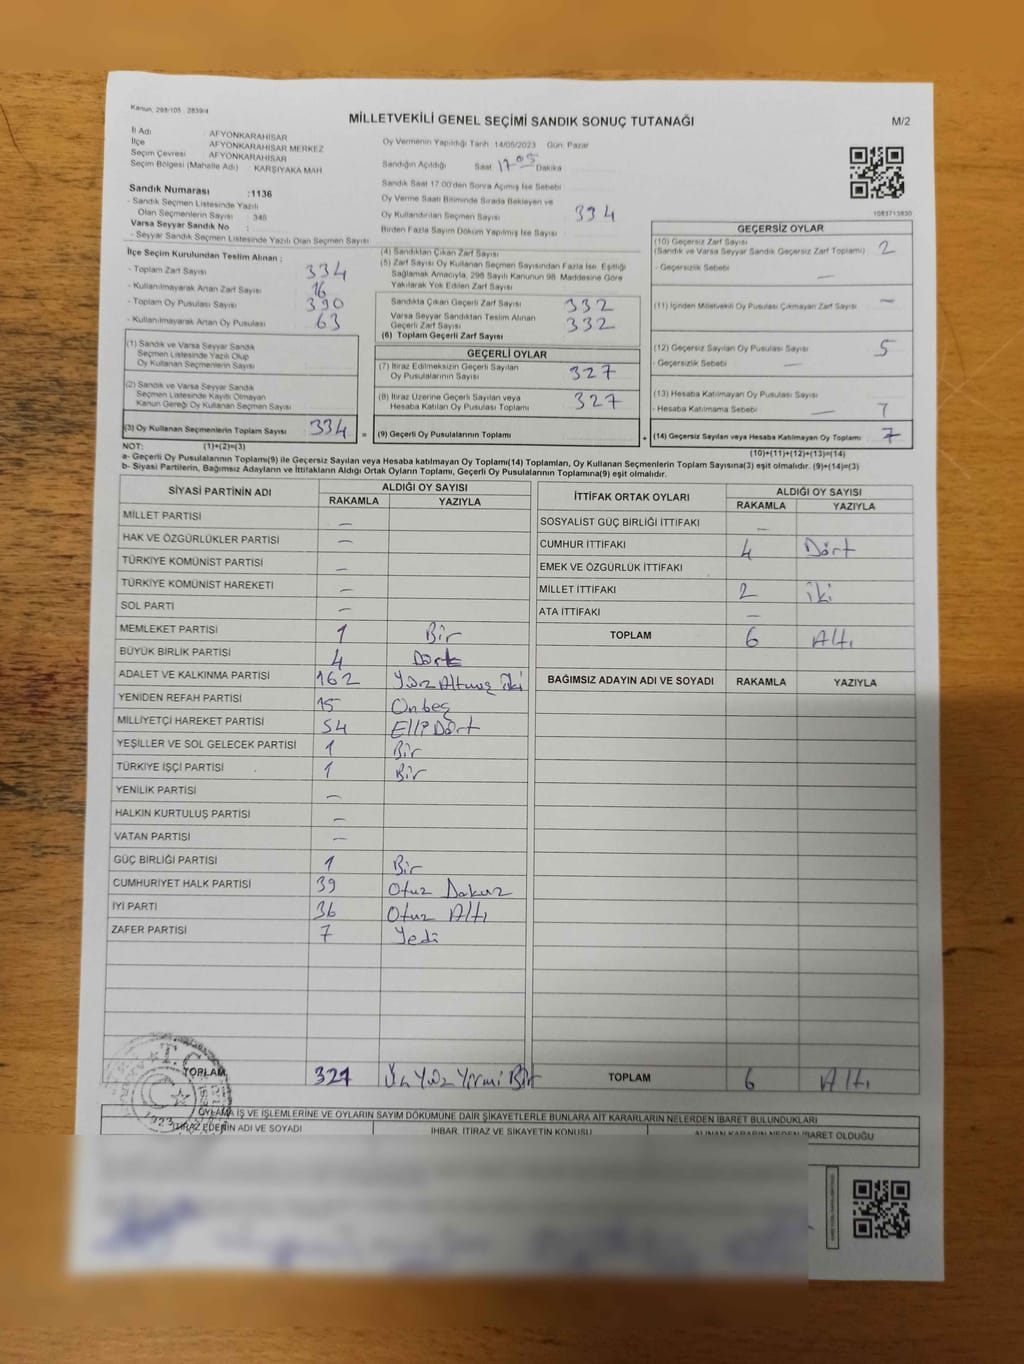 Kanun, 298/105 , 2839/4
MİLLETVEKİLİ GENEL SEÇİMİ SANDIK SONUÇ TUTANAĞI
M/2
İl Adı : AFYONKARAHİSAR
İlçe : AFYONKARAHİSAR MERKEZ
Seçim Çevresi : AFYONKARAHİSAR
Seçim Bölgesi (Mahalle Adı) : KARŞIYAKA MAH
Sandık Numarası :1136
- Sandık Seçmen Listesinde Yazılı
Olan Seçmenlerin Sayısı : 346
Varsa Seyyar Sandık No :
- Seyyar Sandık Seçmen Listesinde Yazılı Olan Seçmen Sayısı
Oy Vermenin Yapıldığı Tarih 14/05/2023 Gün: Pazar
Sandığın Açıldığı Saat 17 05 Dakika
Sandık Saat 17.00'den Sonra Açımış İse Sebebi
Oy Verme Saati Bitiminde Sırada Bekleyen ve
Oy Kullandırılan Seçmen Sayısı 334
Birden Fazla Sayım Döküm Yapılmış İse Sayısı
1083713830
İlçe Seçim Kurulundan Teslim Alınan :
- Toplam Zarf Sayısı 334
- Kullanılmayarak Artan Zarf Sayısı 16
- Toplam Oy Pusulası Sayısı 390
- Kullanılmayarak Artan Oy Pusulası 63
(1) Sandık ve Varsa Seyyar Sandık
Seçmen Listesinde Yazılı Olup
Oy Kullanan Seçmenlerin Sayısı
(2) Sandık ve Varsa Seyyar Sandık
Seçmen Listesinde Kayıtlı Olmayan
Kanun Gereği Oy Kullanan Seçmen Sayısı
(3) Oy Kullanan Seçmenlerin Toplam Sayısı 334 =
(4) Sandıktan Çıkan Zarf Sayısı
(5) Zarf Sayısı Oy Kullanan Seçmen Sayısından Fazla İse, Eşitliği
Sağlamak Amacıyla, 298 Sayılı Kanunun 98. Maddesine Göre
Yakılarak Yok Edilen Zarf Sayısı
Sandıkta Çıkan Geçerli Zarf Sayısı 332
Varsa Seyyar Sandıktan Teslim Alınan
Geçerli Zarf Sayısı 332
(6) Toplam Geçerli Zarf Sayısı
GEÇERLİ OYLAR
(7) İtiraz Edilmeksizin Geçerli Sayılan
Oy Pusulalarının Sayısı 327
(8) İtiraz Üzerine Geçerli Sayılan veya
Hesaba Katılan Oy Pusulası Toplamı 327
(9) Geçerli Oy Pusulalarının Toplamı +
GEÇERSİZ OYLAR
(10) Geçersiz Zarf Sayısı 2
(Sandık ve Varsa Seyyar Sandık Geçersiz Zarf Toplamı)
- Geçersizlik Sebebi —
(11) İçinden Milletvekili Oy Pusulası Çıkmayan Zarf Sayısı —
(12) Geçersiz Sayılan Oy Pusulası Sayısı 5
- Geçersizlik Sebebi —
(13) Hesaba Katılmayan Oy Pusulası Sayısı
- Hesaba Katılmama Sebebi — 7
(14) Geçersiz Sayılan veya Hesaba Katılmayan Oy Toplamı 7
NOT: (1)+(2)=(3)
(10)+(11)+(12)+(13)=(14)
a- Geçerli Oy Pusulalarının Toplamı(9) ile Geçersiz Sayılan veya Hesaba katılmayan Oy Toplamı(14) Toplamları, Oy Kullanan Seçmenlerin Toplam Sayısına(3) eşit olmalıdır. (9)+(14)=(3)
b- Siyasi Partilerin, Bağımsız Adayların ve İttifakların Aldığı Ortak Oyların Toplamı, Geçerli Oy Pusulalarının Toplamına(9) eşit olmalıdır.
SİYASİ PARTİNİN ADI ALDIĞI OY SAYISI
RAKAMLA YAZIYLA
MİLLET PARTİSİ —
HAK VE ÖZGÜRLÜKLER PARTİSİ —
TÜRKİYE KOMÜNİST PARTİSİ —
TÜRKİYE KOMÜNİST HAREKETİ —
SOL PARTİ —
MEMLEKET PARTİSİ 1 Bir
BÜYÜK BİRLİK PARTİSİ 4 Dört
ADALET VE KALKINMA PARTİSİ 162 Yüz Altmış iki
YENİDEN REFAH PARTİSİ 15 Onbeş
MİLLİYETÇİ HAREKET PARTİSİ 54 Elli Dört
YEŞİLLER VE SOL GELECEK PARTİSİ 1 Bir
TÜRKİYE İŞÇİ PARTİSİ 1 Bir
YENİLİK PARTİSİ —
HALKIN KURTULUŞ PARTİSİ —
VATAN PARTİSİ —
GÜÇ BİRLİĞİ PARTİSİ 1 Bir
CUMHURİYET HALK PARTİSİ 39 Otuz Dokuz
İYİ PARTİ 36 Otuz Altı
ZAFER PARTİSİ 7 Yedi
TOPLAM 321 Üç Yüz Yirmi Bir
İTTİFAK ORTAK OYLARI ALDIĞI OY SAYISI
RAKAMLA YAZIYLA
SOSYALİST GÜÇ BİRLİĞİ İTTİFAKI —
CUMHUR İTTİFAKI 4 Dört
EMEK VE ÖZGÜRLÜK İTTİFAKI
MİLLET İTTİFAKI 2 iki
ATA İTTİFAKI —
TOPLAM 6 Altı
BAĞIMSIZ ADAYIN ADI VE SOYADI RAKAMLA YAZIYLA
TOPLAM 6 Altı
T.C.
1923
OYLAMA İŞ VE İŞLEMLERİNE VE OYLARIN SAYIM DÖKÜMÜNE DAİR ŞİKAYETLERLE BUNLARA AİT KARARLARIN NELERDEN İBARET BULUNDUKLARI
İTİRAZ EDENİN ADI VE SOYADI İHBAR, İTİRAZ VE ŞİKAYETİN KONUSU ALINAN KARARIN NEDEN İBARET OLDUĞU